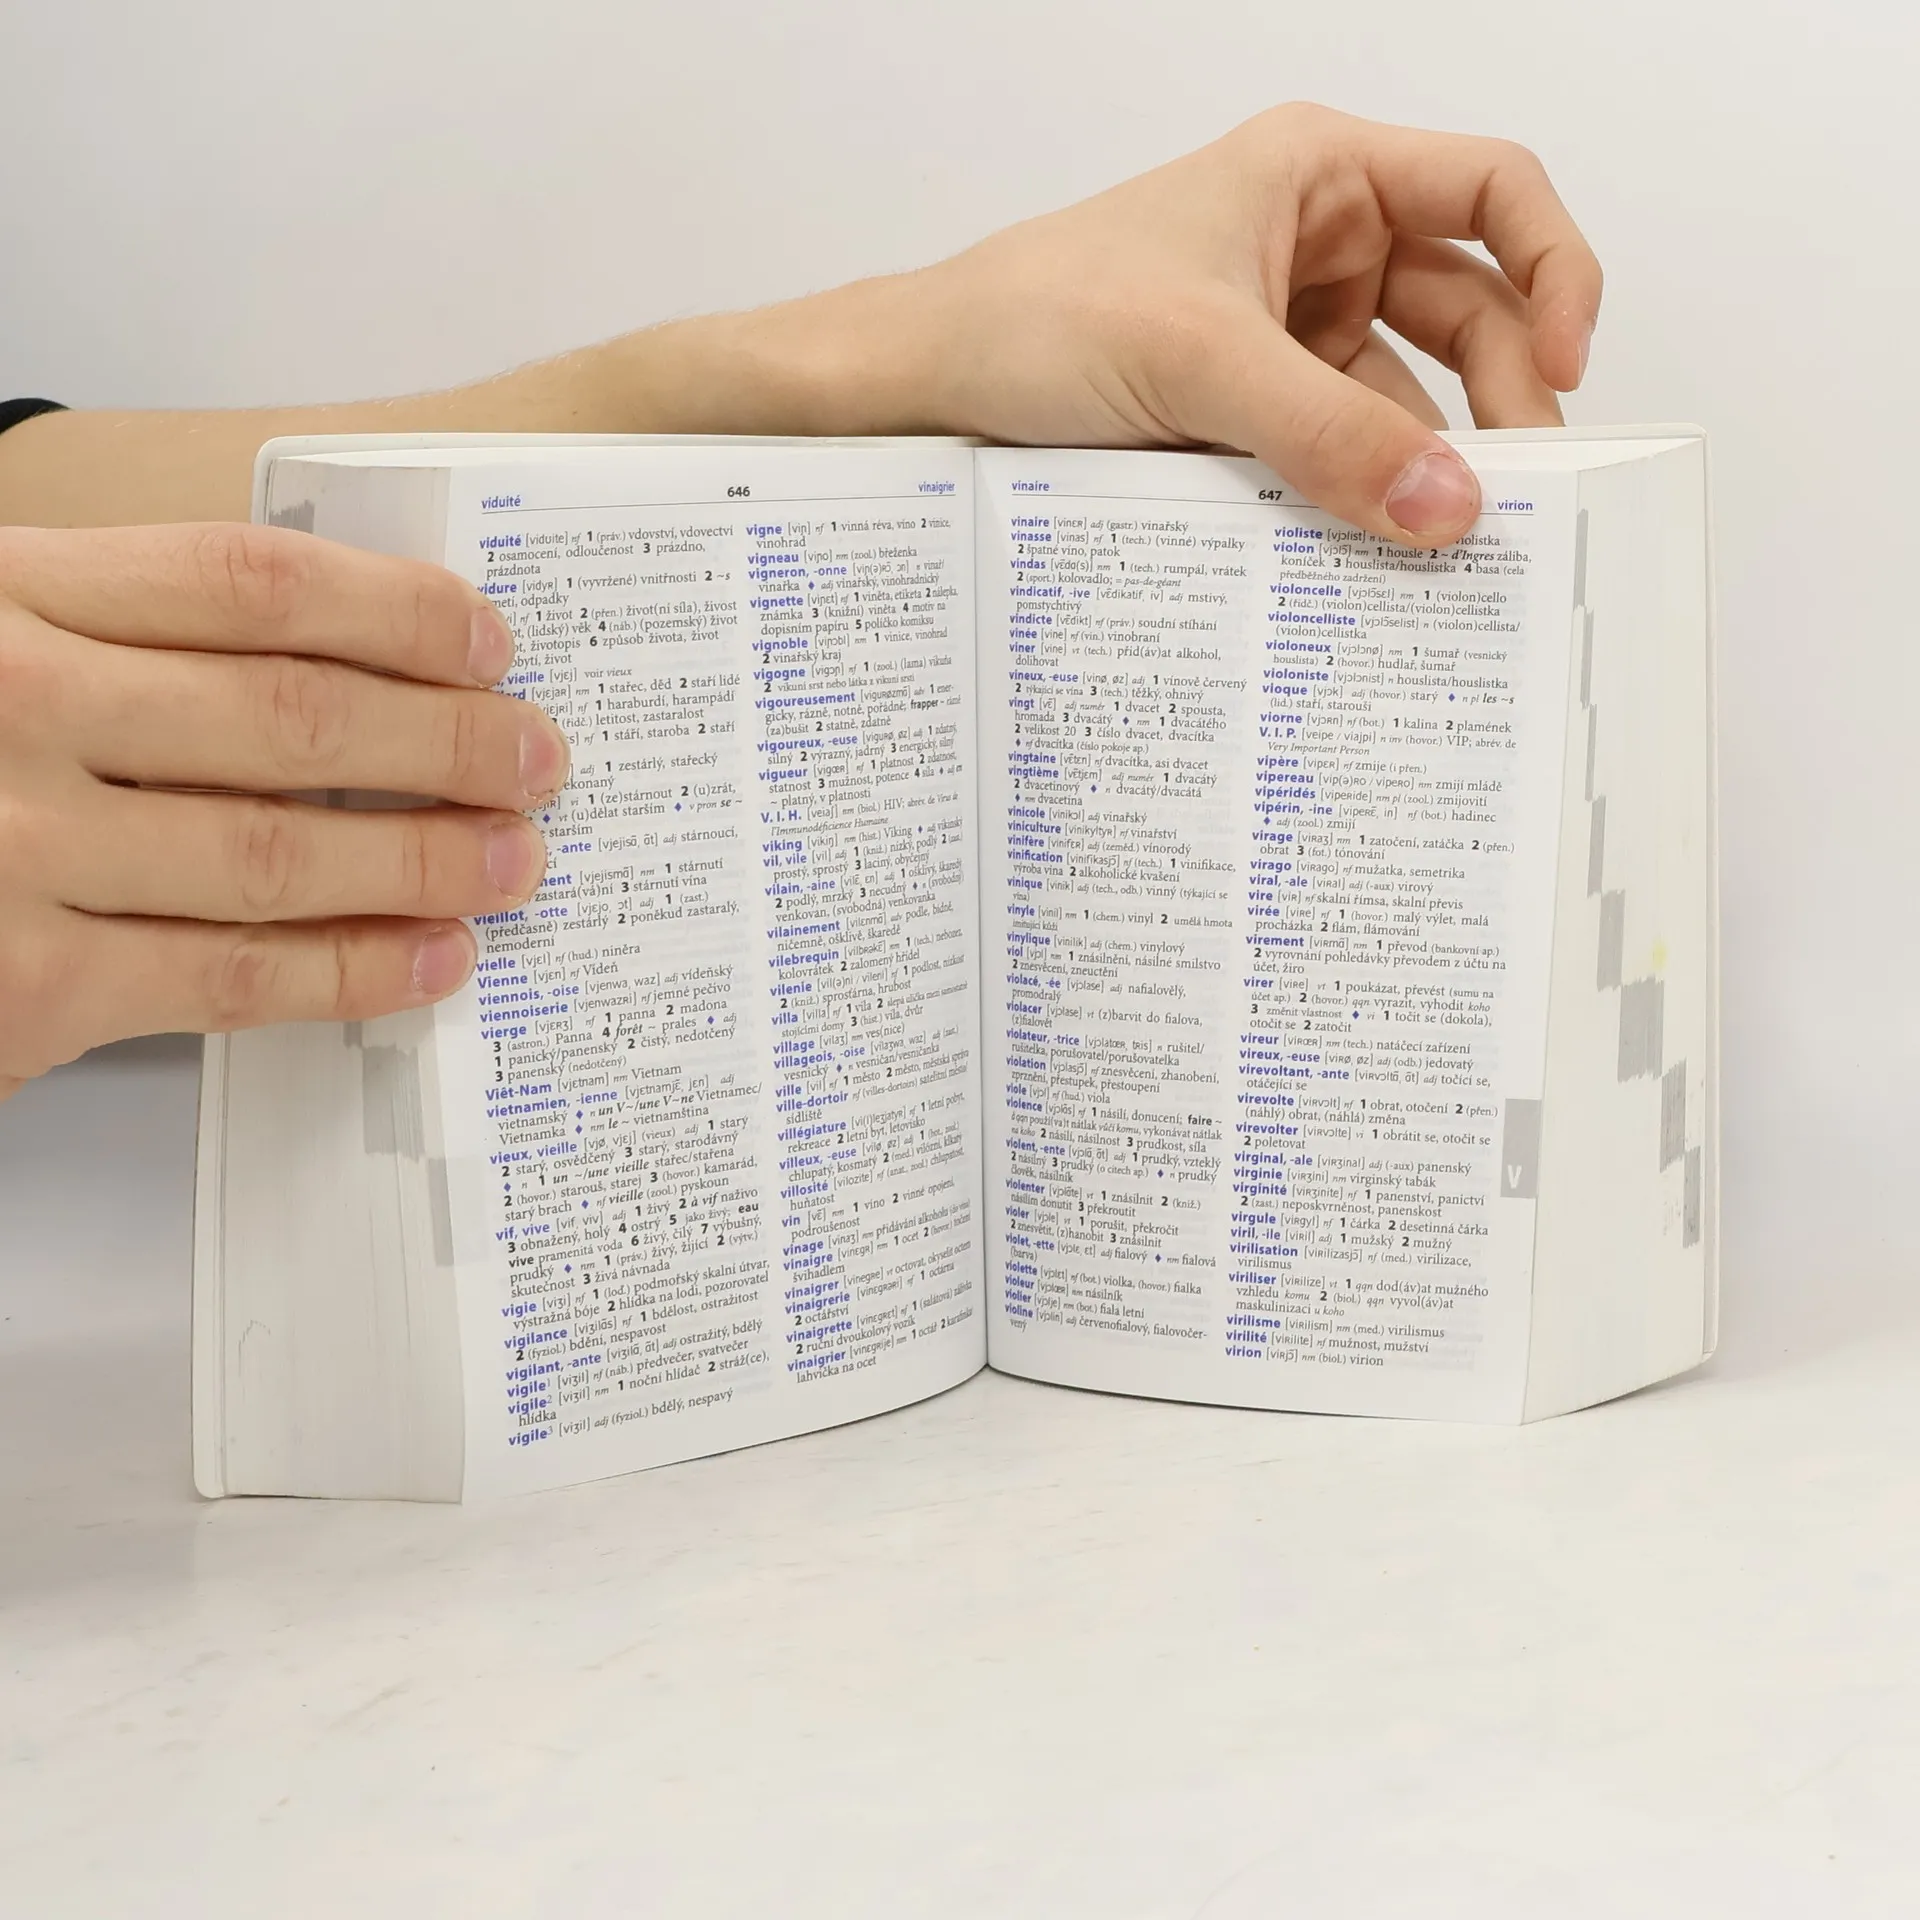 viduité 646 vinaigrier
viduité [vidɥite] nf 1 (práv.) vdovství, vdovectví
2 osamocení, odloučenost 3 prázdno,
prázdnota
vidure [vidyʀ] 1 (vyvržené) vnitřnosti 2 ~s
odpadky
nf 1 život 2 (přen.) život(ní síla), živost
(lidský) věk 4 (náb.) (pozemský) život
životopis 6 způsob života, život
život
vieille [vjɛj] voir vieux
[vjɛjaʀ] nm 1 stařec, děd 2 staří lidé
nf 1 haraburdí, harampádí
3 (řidč.) letitost, zastaralost
nf 1 stáří, staroba 2 staří
adj 1 zestárlý, stařecký
vi 1 (ze)stárnout 2 (u)zrát,
♦ vt (u)dělat starším ♦ v pron se ~
starším
-ante [vjejisɑ̃, ɑ̃t] adj stárnoucí,
[vjejismɑ̃] nm 1 stárnutí
zastará(vá)ní 3 stárnutí vína
vieillot, -otte [vjɛjo, ɔt] adj 1 (zast.)
(předčasně) zestárlý 2 poněkud zastaralý,
nemoderní
vielle [vjɛl] nf (hud.) niněra
Vienne [vjɛn] nf Vídeň
viennois, -oise [vjɛnwa, waz] adj vídeňský
viennoiserie [vjɛnwazʀi] nf jemné pečivo
vierge [vjɛʀʒ] nf 1 panna 2 madona
3 (astron.) Panna 4 forêt ~ prales ♦ adj
1 panický/panenský 2 čistý, nedotčený
3 panenský (nedotčený)
Viêt-Nam [vjɛtnam] nm Vietnam
vietnamien, -ienne [vjɛtnamjɛ̃, jɛn] adj
vietnamský ♦ n un V~/une V~ne Vietnamec/
Vietnamka ♦ nm le ~ vietnamština
vieux, vieille [vjø, vjɛj] (vieux) adj 1 starý
2 starý, osvědčený 3 starý, starodávný
♦ n 1 un ~/une vieille stařec/stařena
2 (hovor.) starouš, starej 3 (hovor.) kamarád,
starý brach ♦ nf vieille (zool.) pyskoun
vif, vive [vif, viv] adj 1 živý 2 à vif naživo
3 obnažený, holý 4 ostrý 5 jako živý; eau
vive pramenitá voda 6 živý, čilý 7 výbušný,
prudký ♦ nm 1 (práv.) živý, žijící 2 (výtv.)
skutečnost 3 živá návnada
vigie [viʒi] nf 1 (lod.) podmořský skalní útvar,
výstražná bóje 2 hlídka na lodi, pozorovatel
vigilance [viʒilɑ̃s] nf 1 bdělost, ostražitost
2 (fyziol.) bdění, nespavost
vigilant, -ante [viʒilɑ̃, ɑ̃t] adj ostražitý, bdělý
vigile¹ [viʒil] nf (náb.) předvečer, svatvečer
vigile² [viʒil] nm 1 noční hlídač 2 stráž(ce),
hlídka
vigile³ [viʒil] adj (fyziol.) bdělý, nespavý
vigne [viɲ] nf 1 vinná réva, víno 2 vinice,
vinohrad
vigneau [viɲo] nm (zool.) břeženka
vigneron, -onne [viɲ(ə)ʀɔ̃, ɔn] n vinař/
vinařka ♦ adj vinařský, vinohradnický
vignette [viɲɛt] nf 1 viněta, etiketa 2 nálepka,
známka 3 (knižní) viněta 4 motiv na
dopisním papíru 5 políčko komiksu
vignoble [viɲɔbl] nm 1 vinice, vinohrad
2 vinařský kraj
vigogne [vigɔɲ] nf 1 (zool.) (lama) vikuňa
2 vikuní srst nebo látka z vikuní srsti
vigoureusement [viguʀøzmɑ̃] adv 1 ener-
gicky, rázně, notně, pořádně; frapper ~
(za)bušit 2 statně, zdatně
vigoureux, -euse [viguʀø, øz] adj 1 zdatný,
silný 2 výrazný, jadrný 3 energický, silný
vigueur [vigœʀ] nf 1 platnost 2 zdatnost,
statnost 3 mužnost, potence 4 síla ♦
~ platný, v platnosti
V. I. H. [veiaʃ] nm (biol.) HIV; abrév. de Virus de
l'Immunodéficience Humaine
viking [vikiŋ] nm (hist.) Viking ♦ adj vikinský
vil, vile [vil] adj 1 (kniž.) nízký, podlý 2 (zast.)
prostý, sprostý 3 laciný, obyčejný
vilain, -aine [vilɛ̃, ɛn] adj 1 ošklivý, škaredý
2 podlý, mrzký 3 necudný ♦ n (svobodný)
venkovan, (svobodná) venkovanka
vilainement [vilɛnmɑ̃] adv podle, bídně,
ničemně, ošklivě, škaredě
vilebrequin [vilbʀəkɛ̃] nm 1 (tech.) nebozez,
kolovrátek 2 zalomený hřídel
vilenie [vil(ə)ni / vileni] nf 1 podlost, nízkost
2 (kniž.) sprosťárna, hrubost
villa [villa] nf 1 vila 2 slepá ulička mezi samostatně
stojícími domy 3 (hist.) vila, dvůr
village [vilaʒ] nm ves(nice)
villageois, -oise [vilaʒwa, waz] adj (zast.)
vesnický ♦ n vesničan/vesničanka
ville [vil] nf 1 město 2 město, městská správa
ville-dortoir nf (villes-dortoirs) satelitní město/
sídliště
villégiature [vi(l)leʒjatyʀ] nf 1 letní pobyt,
rekreace 2 letní byt, letovisko
villeux, -euse [vilø, øz] adj 1 (bot., zool.)
chlupatý, kosmatý 2 (med.) vilózní, klkatý
villosité [vilozite] nf (anat., zool.) chlupatost,
huňatost
vin [vɛ̃] nm 1 víno 2 vinné opojení,
podroušenost
vinage [vinaʒ] nm přidávání alkoholu (do vína)
vinaigre [vinɛgʀ] nm 1 ocet 2 (hovor.) točení
švihadlem
vinaigrer [vinegʀe] vt octovat, okyselit octem
vinaigrerie [vinɛgʀəʀi] nf 1 octárna
2 octářství
vinaigrette [vinɛgʀɛt] nf 1 (salátová) zálivka
2 ruční dvoukolový vozík
vinaigrier [vinɛgʀije] nm 1 octář 2 karafinka
lahvička na ocet
vinaire 647 virion
vinaire [vinɛʀ] adj (gastr.) vinařský
vinasse [vinas] nf 1 (tech.) (vinné) výpalky
2 špatné víno, patok
vindas [vɛ̃da(s)] nm 1 (tech.) rumpál, vrátek
2 (sport.) kolovadlo; = pas-de-géant
vindicatif, -ive [vɛ̃dikatif, iv] adj mstivý,
pomstychtivý
vindicte [vɛ̃dikt] nf (práv.) soudní stíhání
vinée [vine] nf (vin.) vinobraní
viner [vine] vt (tech.) přid(áv)at alkohol,
dolihovat
vineux, -euse [vinø, øz] adj 1 vínově červený
2 týkající se vína 3 (tech.) těžký, ohnivý
vingt [vɛ̃] adj numér 1 dvacet 2 spousta,
hromada 3 dvacátý ♦ nm 1 dvacátého
2 velikost 20 3 číslo dvacet, dvacítka
♦ nf dvacítka (číslo pokoje ap.)
vingtaine [vɛ̃tɛn] nf dvacítka, asi dvacet
vingtième [vɛ̃tjɛm] adj numér 1 dvacátý
2 dvacetinový ♦ n dvacátý/dvacátá
♦ nm dvacetina
vinicole [vinikɔl] adj vinařský
viniculture [vinikyltyʀ] nf vinařství
vinifère [vinifɛʀ] adj (zeměd.) vínorodý
vinification [vinifikasjɔ̃] nf (tech.) 1 vinifikace,
výroba vína 2 alkoholické kvašení
vinique [vinik] adj (tech., odb.) vinný (týkající se
vína)
vinyle [vinil] nm 1 (chem.) vinyl 2 umělá hmota
imitující kůži
vinylique [vinilik] adj (chem.) vinylový
viol [vjɔl] nm 1 znásilnění, násilné smilstvo
2 znesvěcení, zneuctění
violacé, -ée [vjɔlase] adj nafialovělý,
promodralý
violacer [vjɔlase] vt (z)barvit do fialova,
(z)fialovět
violateur, -trice [vjɔlatœʀ, tʀis] n rušitel/
rušitelka, porušovatel/porušovatelka
violation [vjɔlasjɔ̃] nf znesvěcení, zhanobení,
zprznění, přestupek, přestoupení
viole [vjɔl] nf (hud.) viola
violence [vjɔlɑ̃s] nf 1 násilí, donucení; faire ~
à qqn použí(va)t nátlak vůči komu, vykonávat nátlak
na koho 2 násilí, násilnost 3 prudkost, síla
violent, -ente [vjɔlɑ̃, ɑ̃t] adj 1 prudký, vzteklý
2 násilný 3 prudký (o citech ap.) ♦ n prudký
člověk, násilník
violenter [vjɔlɑ̃te] vt 1 znásilnit 2 (kniž.)
násilím donutit 3 překroutit
violer [vjɔle] vt 1 porušit, překročit
2 znesvětit, (z)hanobit 3 znásilnit
violet, -ette [vjɔlɛ, ɛt] adj fialový ♦ nm fialová
(barva)
violette [vjɔlɛt] nf (bot.) violka, (hovor.) fialka
violeur [vjɔlœʀ] nm násilník
violier [vjɔlje] nm (bot.) fiala letní
violine [vjɔlin] adj červenofialový, fialovočer-
vený
violiste [vjɔlist] n violistka
violon [vjɔlɔ̃] nm 1 housle 2 ~ d'Ingres záliba,
koníček 3 houslista/houslistka 4 basa (cela
předběžného zadržení)
violoncelle [vjɔlɔ̃sɛl] nm 1 (violon)cello
2 (řidč.) (violon)cellista/(violon)cellistka
violoncelliste [vjɔlɔ̃selist] n (violon)cellista/
(violon)cellistka
violoneux [vjɔlɔnø] nm 1 šumař (vesnický
houslista) 2 (hovor.) hudlař, šumař
violoniste [vjɔlɔnist] n houslista/houslistka
vioque [vjɔk] adj (hovor.) starý ♦ n pl les ~s
(lid.) staří, starouši
viorne [vjɔʀn] nf (bot.) 1 kalina 2 plamének
V. I. P. [veipe / viajpi] n inv (hovor.) VIP; abrév. de
Very Important Person
vipère [vipɛʀ] nf zmije (i přen.)
vipereau [vip(ə)ʀo / vipeʀo] nm zmijí mládě
vipéridés [vipeʀide] nm pl (zool.) zmijovití
vipérin, -ine [vipeʀɛ̃, in] nf (bot.) hadinec
♦ adj (zool.) zmijí
virage [viʀaʒ] nm 1 zatočení, zatáčka 2 (přen.)
obrat 3 (fot.) tónování
virago [viʀago] nf mužatka, semetrika
viral, -ale [viʀal] adj (-aux) virový
vire [viʀ] nf skalní římsa, skalní převis
virée [viʀe] nf 1 (hovor.) malý výlet, malá
procházka 2 flám, flámování
virement [viʀmɑ̃] nm 1 převod (bankovní ap.)
2 vyrovnání pohledávky převodem z účtu na
účet, žiro
virer [viʀe] vt 1 poukázat, převést (sumu na
účet ap.) 2 (hovor.) qqn vyrazit, vyhodit koho
3 změnit vlastnost ♦ vi 1 točit se (dokola),
otočit se 2 zatočit
vireur [viʀœʀ] nm (tech.) natáčecí zařízení
vireux, -euse [viʀø, øz] adj (odb.) jedovatý
virevoltant, -ante [viʀvɔltɑ̃, ɑ̃t] adj točící se,
otáčející se
virevolte [viʀvɔlt] nf 1 obrat, otočení 2 (přen.)
(náhlý) obrat, (náhlá) změna
virevolter [viʀvɔlte] vi 1 obrátit se, otočit se
2 poletovat
virginal, -ale [viʀʒinal] adj (-aux) panenský
virginie [viʀʒini] nm virginský tabák
virginité [viʀʒinite] nf 1 panenství, panictví
2 (zast.) neposkvrněnost, panenskost
virgule [viʀgyl] nf 1 čárka 2 desetinná čárka
viril, -ile [viʀil] adj 1 mužský 2 mužný
virilisation [viʀilizasjɔ̃] nf (med.) virilizace,
virilismus
viriliser [viʀilize] vt 1 qqn dod(áv)at mužného
vzhledu komu 2 (biol.) qqn vyvol(áv)at
maskulinizaci u koho
virilisme [viʀilism] nm (med.) virilismus
virilité [viʀilite] nf mužnost, mužství
virion [viʀjɔ̃] nm (biol.) virion
V